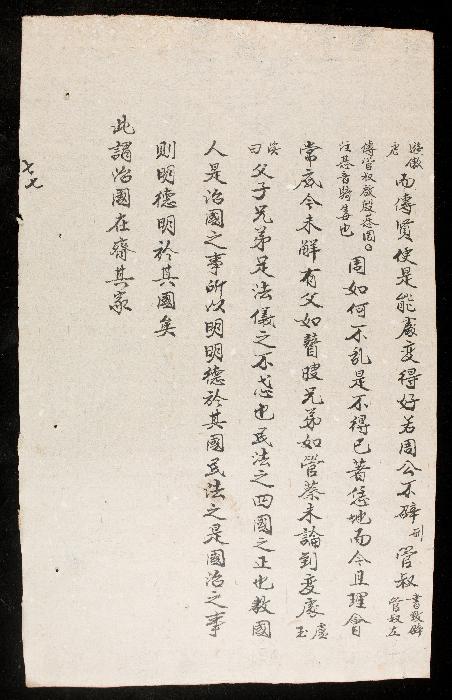 遊傲虐而傳賢便是能處変得好若周公不辟刑管叔書致辟管叔左
傳管叔啟殷惎間。注惎音騎毒也周如何不乱是不得已著恁地而今且理會
常底今未解有父如瞽瞍兄弟如管蔡未論到変處玉盧
溪曰父子兄弟足法儀之不忒也民法之四國之正也教國
人是治國之事所以明明德於其國民法之是國治之事
則明德明於其國矣
此謂治國在齊其家
七七